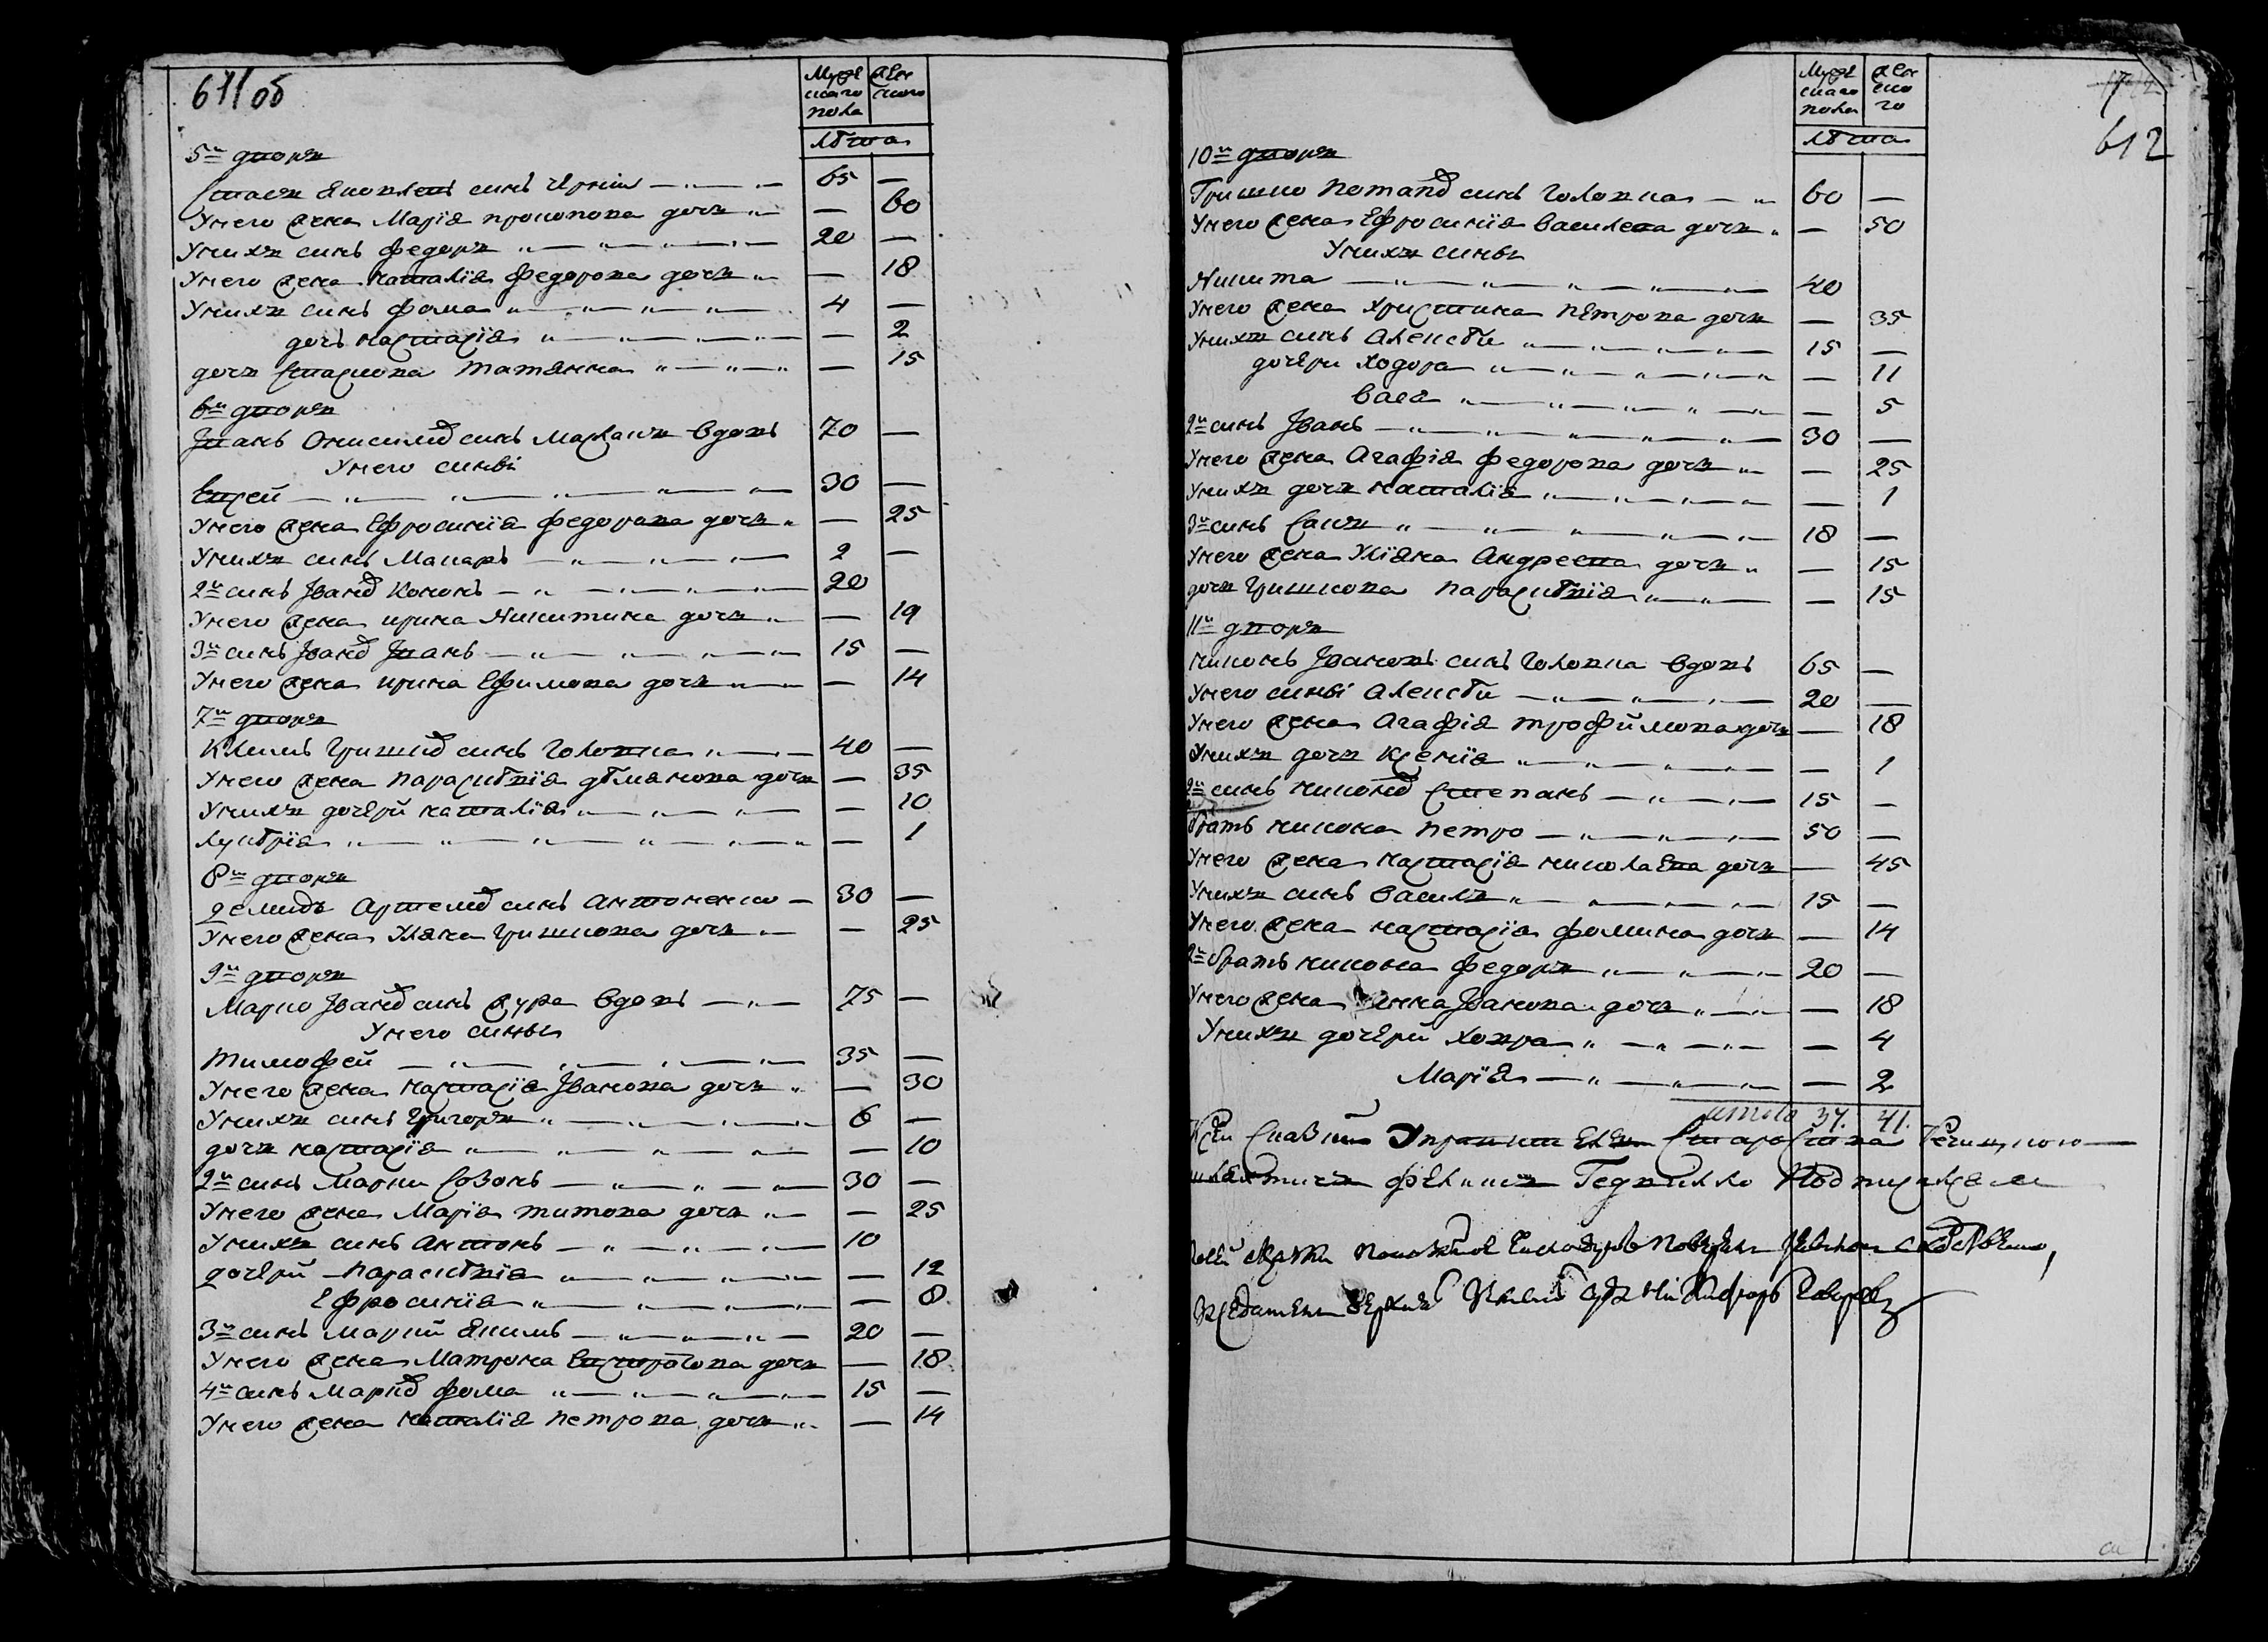 611об
Муже
скаго
пола
Жен
скаго
лѣта
5й дворъ
Стасъ Яковлевъ синъ Чернiй 65 —
Унего жена Марiя Прокопова дочъ — 60
Унихъ синъ Федоръ 20 —
Унего жена Наталiя Федорова дочъ — 18
Унихъ синъ Фома 4 —
дочь Настасiя — 2
дочъ Стасюова Татянна — 15
6й дворъ
Иванъ Онисимов синъ вдовъ 70 —
Унего синві
Евсей 30 —
Унего жена Ефросинiя Федорова дочъ — 25
Унихъ синъ Макаръ 2 —
2й синъ Иванов Кононъ 20
Унего жена Ирина Никитина дочъ — 19
3й синъ Иванов Иванъ 15 —
Унего жена Ирина Ефимова дочъ — 14
7й дворъ
Климъ Гришков синъ Головка 40 —
Унего жена Парасковiя Демянова дочъ — 35
Унихъ дочерй Наталiя — 10
Лукерiя — 1
8й дворъ
Демидъ Артемов синъ Антоненко 30 —
Унего жена Уляна Гришкова дочъ — 25
9й дворъ
Марко Иванов синъ Жура вдовъ 75 —
Унего синвы
Тимофей 35 —
Унего жена Настасiя Иванова дочъ — 30
Унихъ синъ Григоръ 6 —
дочъ Настасiя — 10
2й синъ Марки Созонъ 30 —
Унего жена Марiя Титова дочъ — 25
Унихъ синъ Антонъ 10
дочерй Парасковiя — 12
Ефросинiя — 8
3й синъ Маркй Якимъ 20 —
Унего жена Матрона дочъ — 18
4й синъ Марков Фома 15 —
Унего жена Наталiя Петрова дочъ — 14
612
Муже
скаго
пола
Жен
ско
го
лѣта
10й дворъ
Гришко Потапов синъ Головка 60 —
Унего жена Ефросинiя Василева дочъ — 50
Унихъ синвы
Никита 40
Унего жена Христина Петрова дочъ — 35
Унихъ синъ Алексѣй 15 —
дочери Ходора — 11
Васа — 5
2й синъ Иванъ 30 —
Унего жена Агафiя Федорова дочъ — 25
Унихъ дочъ Наталiя — 1
3й синъ Сакъ 18 —
Унего жена Улiяна Андреева дочъ — 15
дочъ Гришкова Парасковiя — 15
11й дворъ
Никонъ Ивановъ синъ Головка вдовъ 65 —
Унего синві Алексѣй 20 —
Унего жена Агафiя Трофймова дочъ — 18
Унихъ дочъ Ксенiя — 1
2й синъ Никонов Степанъ 15 —
братъ Никона Петро 50 —
Унего жена Настасiя Николаева дочъ — 45
Унихъ синъ Василъ 15 —
Унего жена Настасiя Фомина дочъ — 14
2й братъ Никона Федоръ 20 —
Унего жена Анна Иванова дочъ — 18
Унихъ дочерй Ховра — 4
Марiя — 2
итого 37. 41.
Староства
шляхтичъ Феликсъ Подписалсям